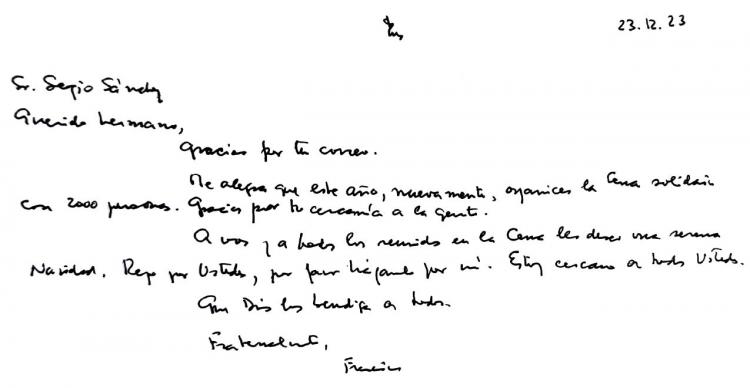 23.12.23
Sr. Sergio Sánchez
Querido hermano,
Gracias por tu correo.
Me alegra que este año, nuevamente, organices la Cena solidaria
con 2000 personas. Gracias por tu cercanía a la gente.
A vos y a todos los reunidos en la Cena les deseo una serena
Navidad. Rezo por Ustedes, por favor háganlo por mí. Estoy cercano a todos Ustedes.
Que Dios los bendiga a todos.
Fraternalmente,
Francisco